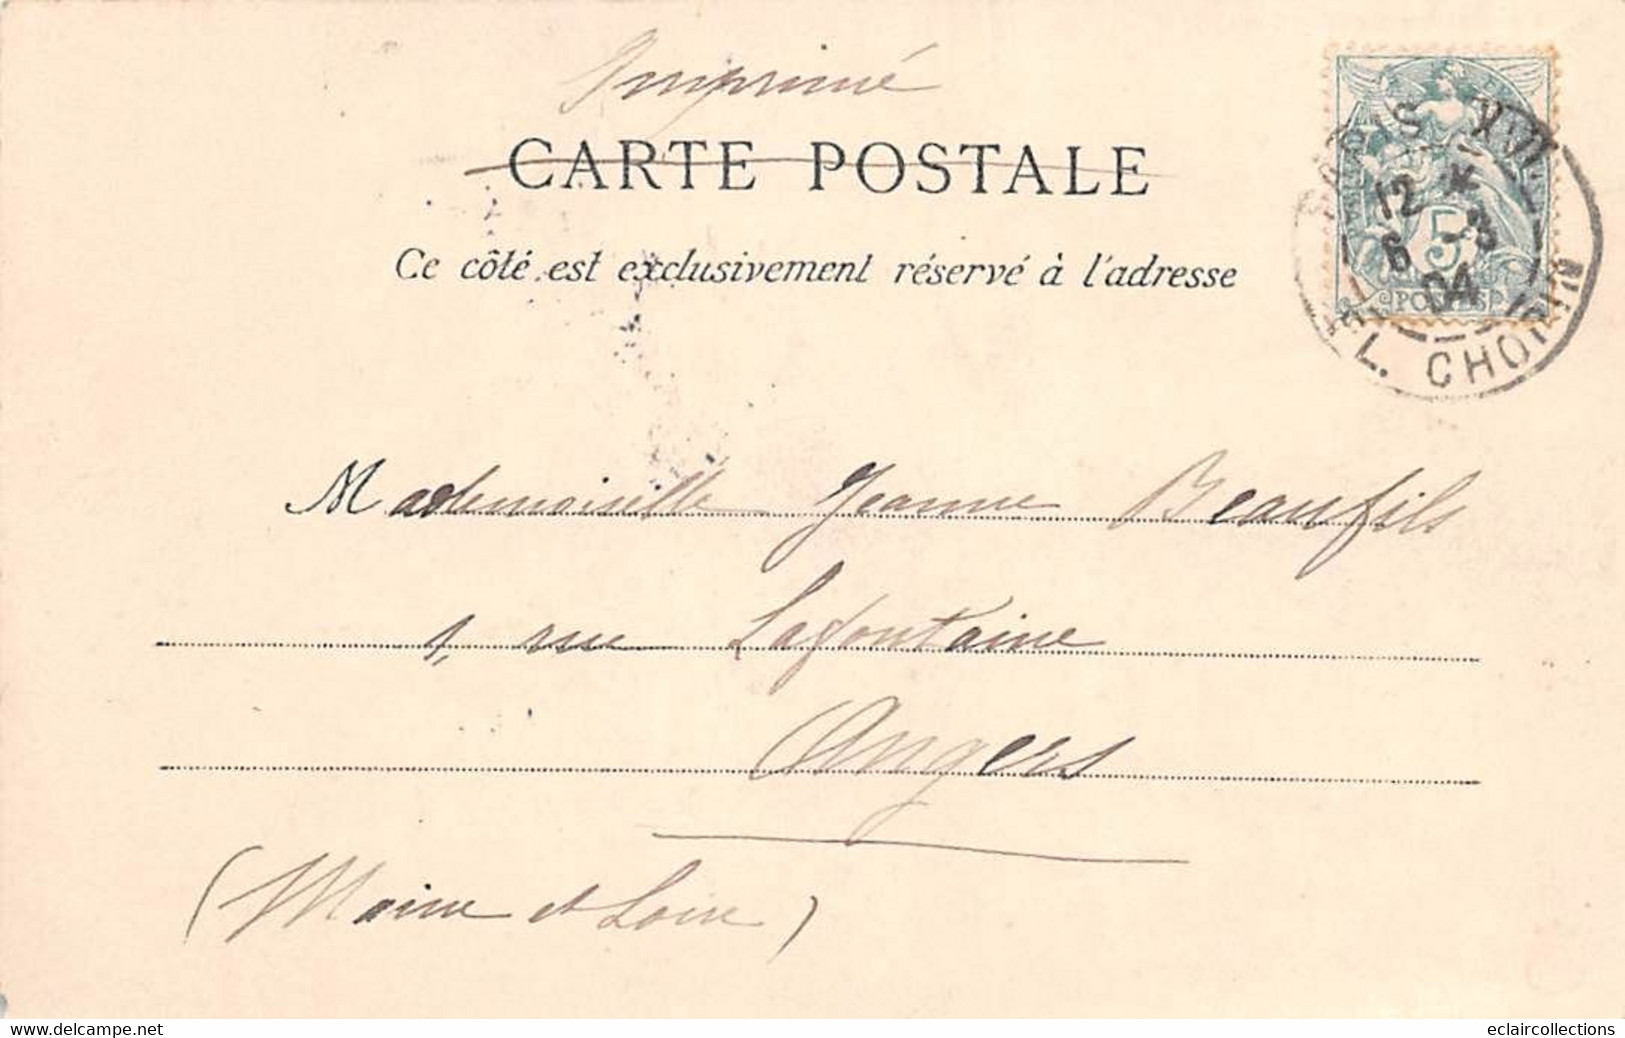 Imprimé
CARTE POSTALE
Ce côté est exclusivement réservé à l'adresse
5
POSTES
12
6 -3
04
PL. CHOPIN
Mademoiselle Jeanne Beaufils
1, rue Lafontaine
Angers
(Maine et Loire)
www.delcampe.net
eclaircollections